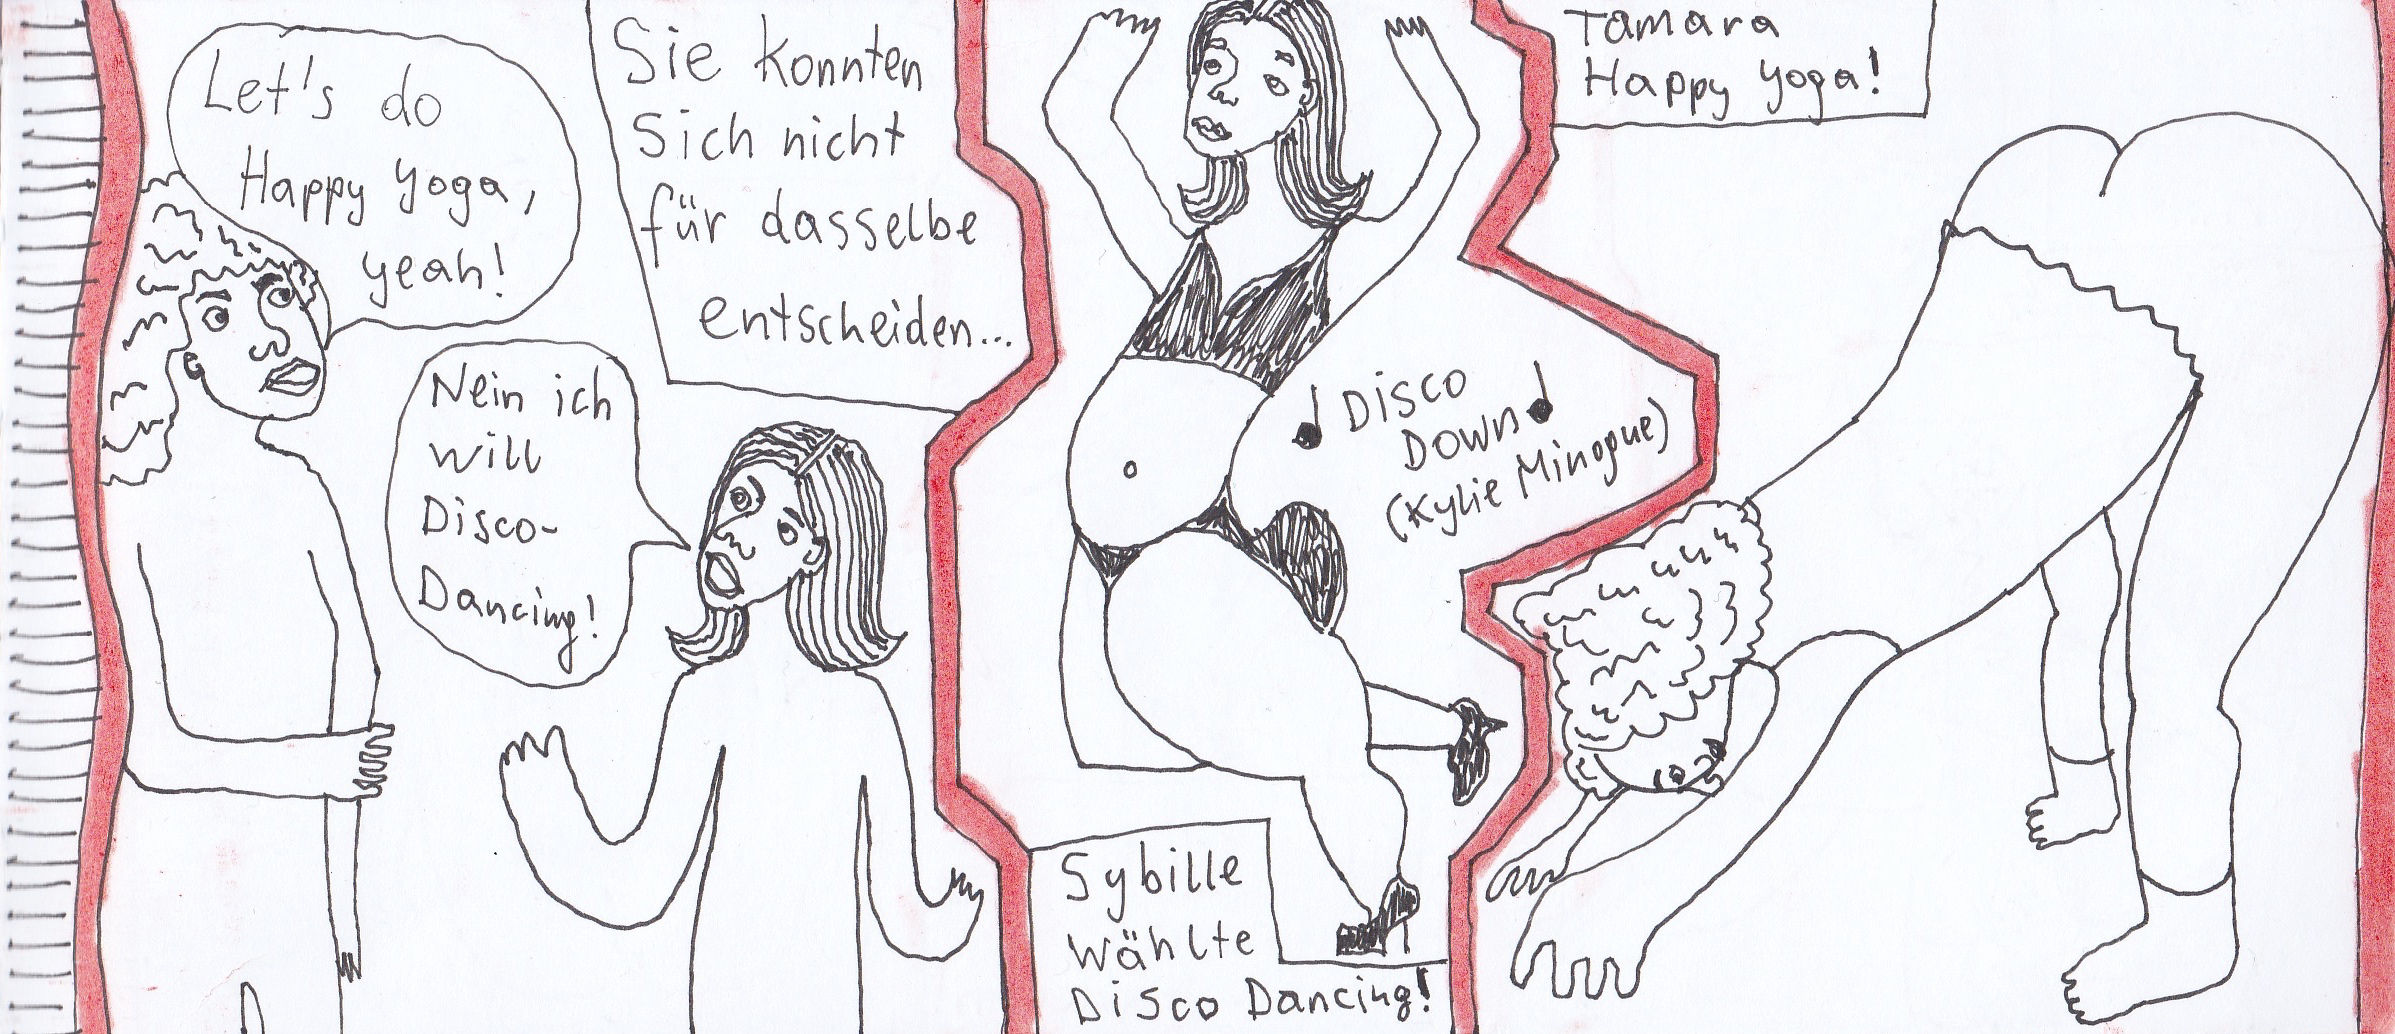 Let's do
Happy Yoga,
yeah!
Nein ich
will
Disco-
Dancing!
Sie konnten
Sich nicht
für dasselbe
entscheiden...
Disco
Down
(Kylie Minogue)
Sybille
wählte
Disco Dancing!
Tamara
Happy Yoga!